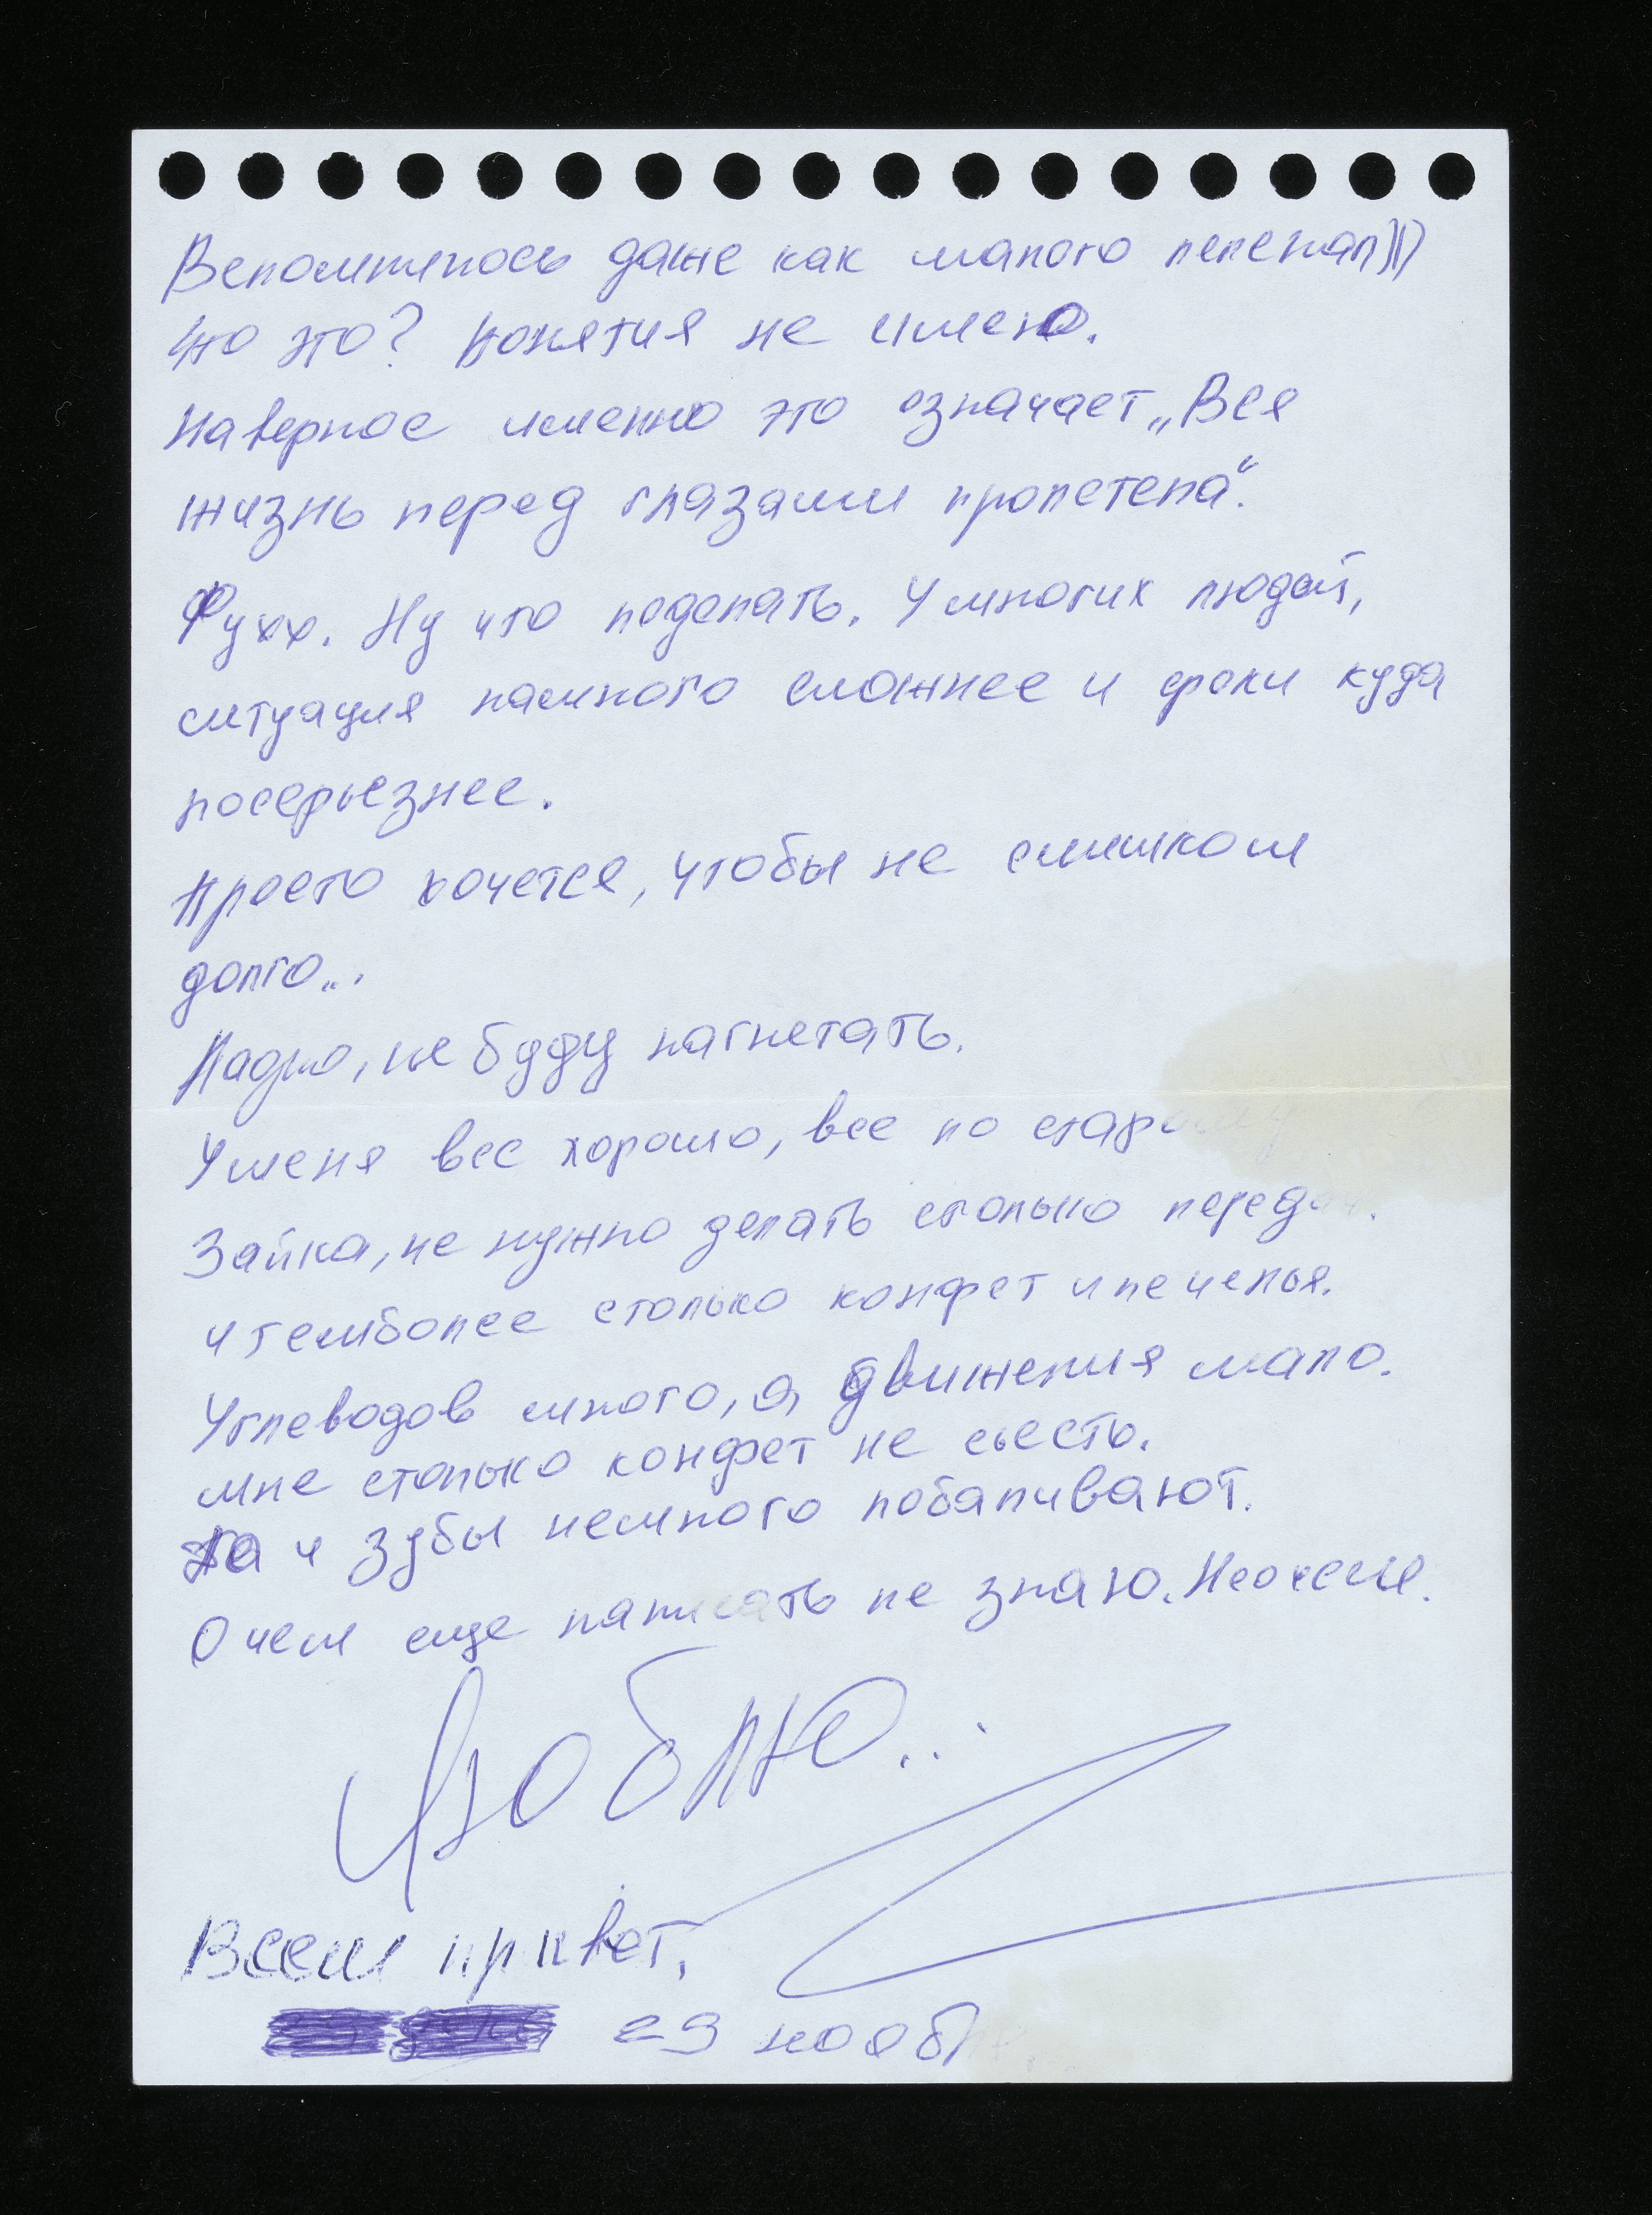 Вспомнилось даже как малого пеленал)))
Что это? Понятия не имею.
Наверное именно это означает „Вся
жизнь перед глазами пролетела“.
Фухх. Ну что поделать. У многих людей,
ситуация намного сложнее и сроки куда
посерьезнее.
Просто хочется, чтобы не слишком
долго...
Ладно, не буду нагнетать.
У меня все хорошо, все по старому
Зайка, не нужно делать столько передач.
и темболее столько конфет и печенья.
Углеводов много, а движения мало.
мне столько конфет не сьесть.
Да и зубы немного побаливают.
О чем еще написать не знаю. Не о чем.
Люблю...
Всем привет.
29 нояб